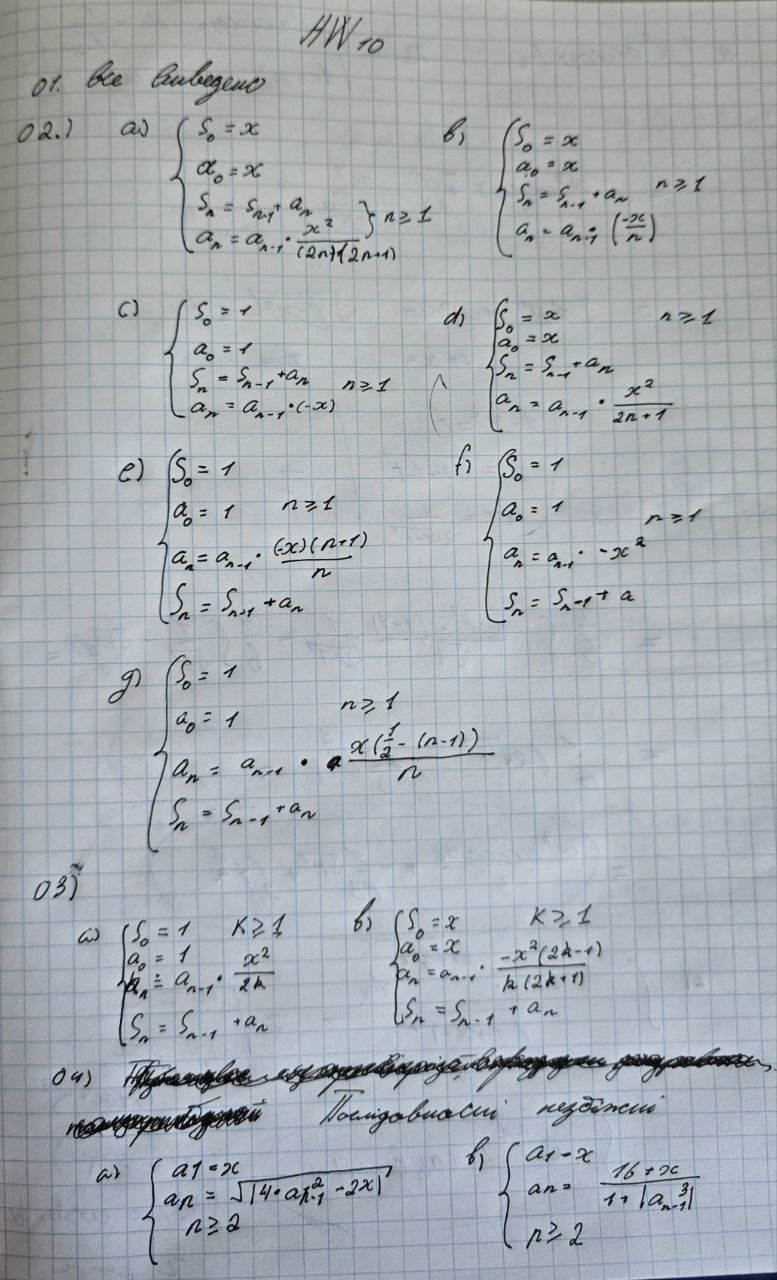 HW 10
01. Все виведено
02.) a) S₀ = x
a₀ = x
Sₙ = Sₙ₋₁ + aₙ
aₙ = aₙ₋₁ · x²/((2n)(2n+1)) } n ≥ 1
b) S₀ = x
a₀ = x
Sₙ = Sₙ₋₁ + aₙ n ≥ 1
aₙ = aₙ₋₁ · (-x/n)
c) S₀ = 1
a₀ = 1
Sₙ = Sₙ₋₁ + aₙ n ≥ 1
aₙ = aₙ₋₁ · (-x)
d) S₀ = x n ≥ 1
a₀ = x
Sₙ = Sₙ₋₁ + aₙ
aₙ = aₙ₋₁ · x²/(2n+1)
e) S₀ = 1
a₀ = 1 n ≥ 1
aₙ = aₙ₋₁ · (-x)(n+1)/n
Sₙ = Sₙ₋₁ + aₙ
f) S₀ = 1
a₀ = 1 n ≥ 1
aₙ = aₙ₋₁ · -x²
Sₙ = Sₙ₋₁ + a
g) S₀ = 1
a₀ = 1 n ≥ 1
aₙ = aₙ₋₁ · x(1/2 - (n-1))/n
Sₙ = Sₙ₋₁ + aₙ
03)
a) S₀ = 1 K ≥ 1
a₀ = 1
aₙ = aₙ₋₁ · x²/2k
Sₙ = Sₙ₋₁ + aₙ
b) S₀ = x K ≥ 1
a₀ = x
aₙ = aₙ₋₁ · -x²(2k-1)/(k(2k+1))
Sₙ = Sₙ₋₁ + aₙ
04)
Послідовності незбіжні
a) a1 = x
an = √|4·aₙ₋₁² - 2x|
n ≥ 2
b) a1 = x
an = (16 + x)/(1 + |aₙ₋₁³|)
n ≥ 2